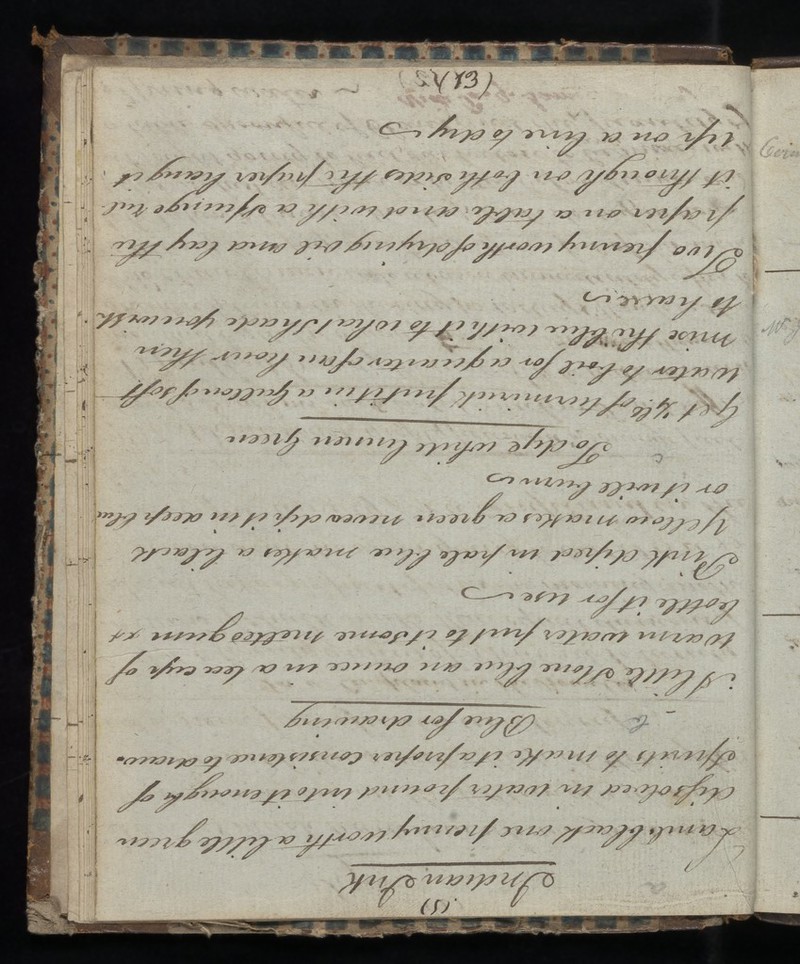 (5)
Indian Ink
Lamb black one penny worth a little green
dissolved in water pound into it enough of
spirits to make it a proper consistene to draw.
Blue for drawing
A little stone blue an ounce in a tea cup of
Warm water put to it some melted gum &
bottle it for use
Pink diped in pale blue makes a black
Yellow makes a green never dip it in deep blue
or it will burn
To dye white linnen Green
Get ¼ lb of turmirick put it in a gallon of soft
water to boil for a quarter of an hour then
mix the blue with it to what shade you wish
to have
Two penny worth of drying oil and lay the
paper on a table and with a spunge rub
it through on both sides the paper hang it
up on a line to dry
(13)